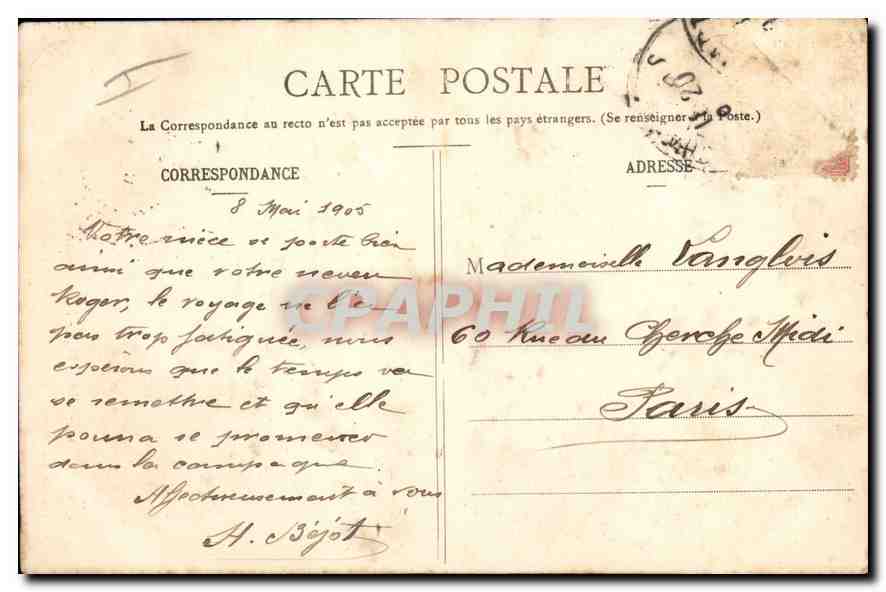 CARTE POSTALE
La Correspondance au recto n'est pas acceptée par tous les pays étrangers. (Se renseigner à la Poste.)
CORRESPONDANCE
8 Mai 1905
Votre nièce se porte bien
ainsi que votre neveu
Roger, le voyage ne l'a
pas trop fatiguée, nous
espérons que le temps va
se remettre et qu'elle
pourra se promener
dans la campagne.
Affectueusement à vous
H. Béjot
ADRESSE
Mademoiselle Langlois
60 Rue du Cherche Midi
Paris
CPAPHIL